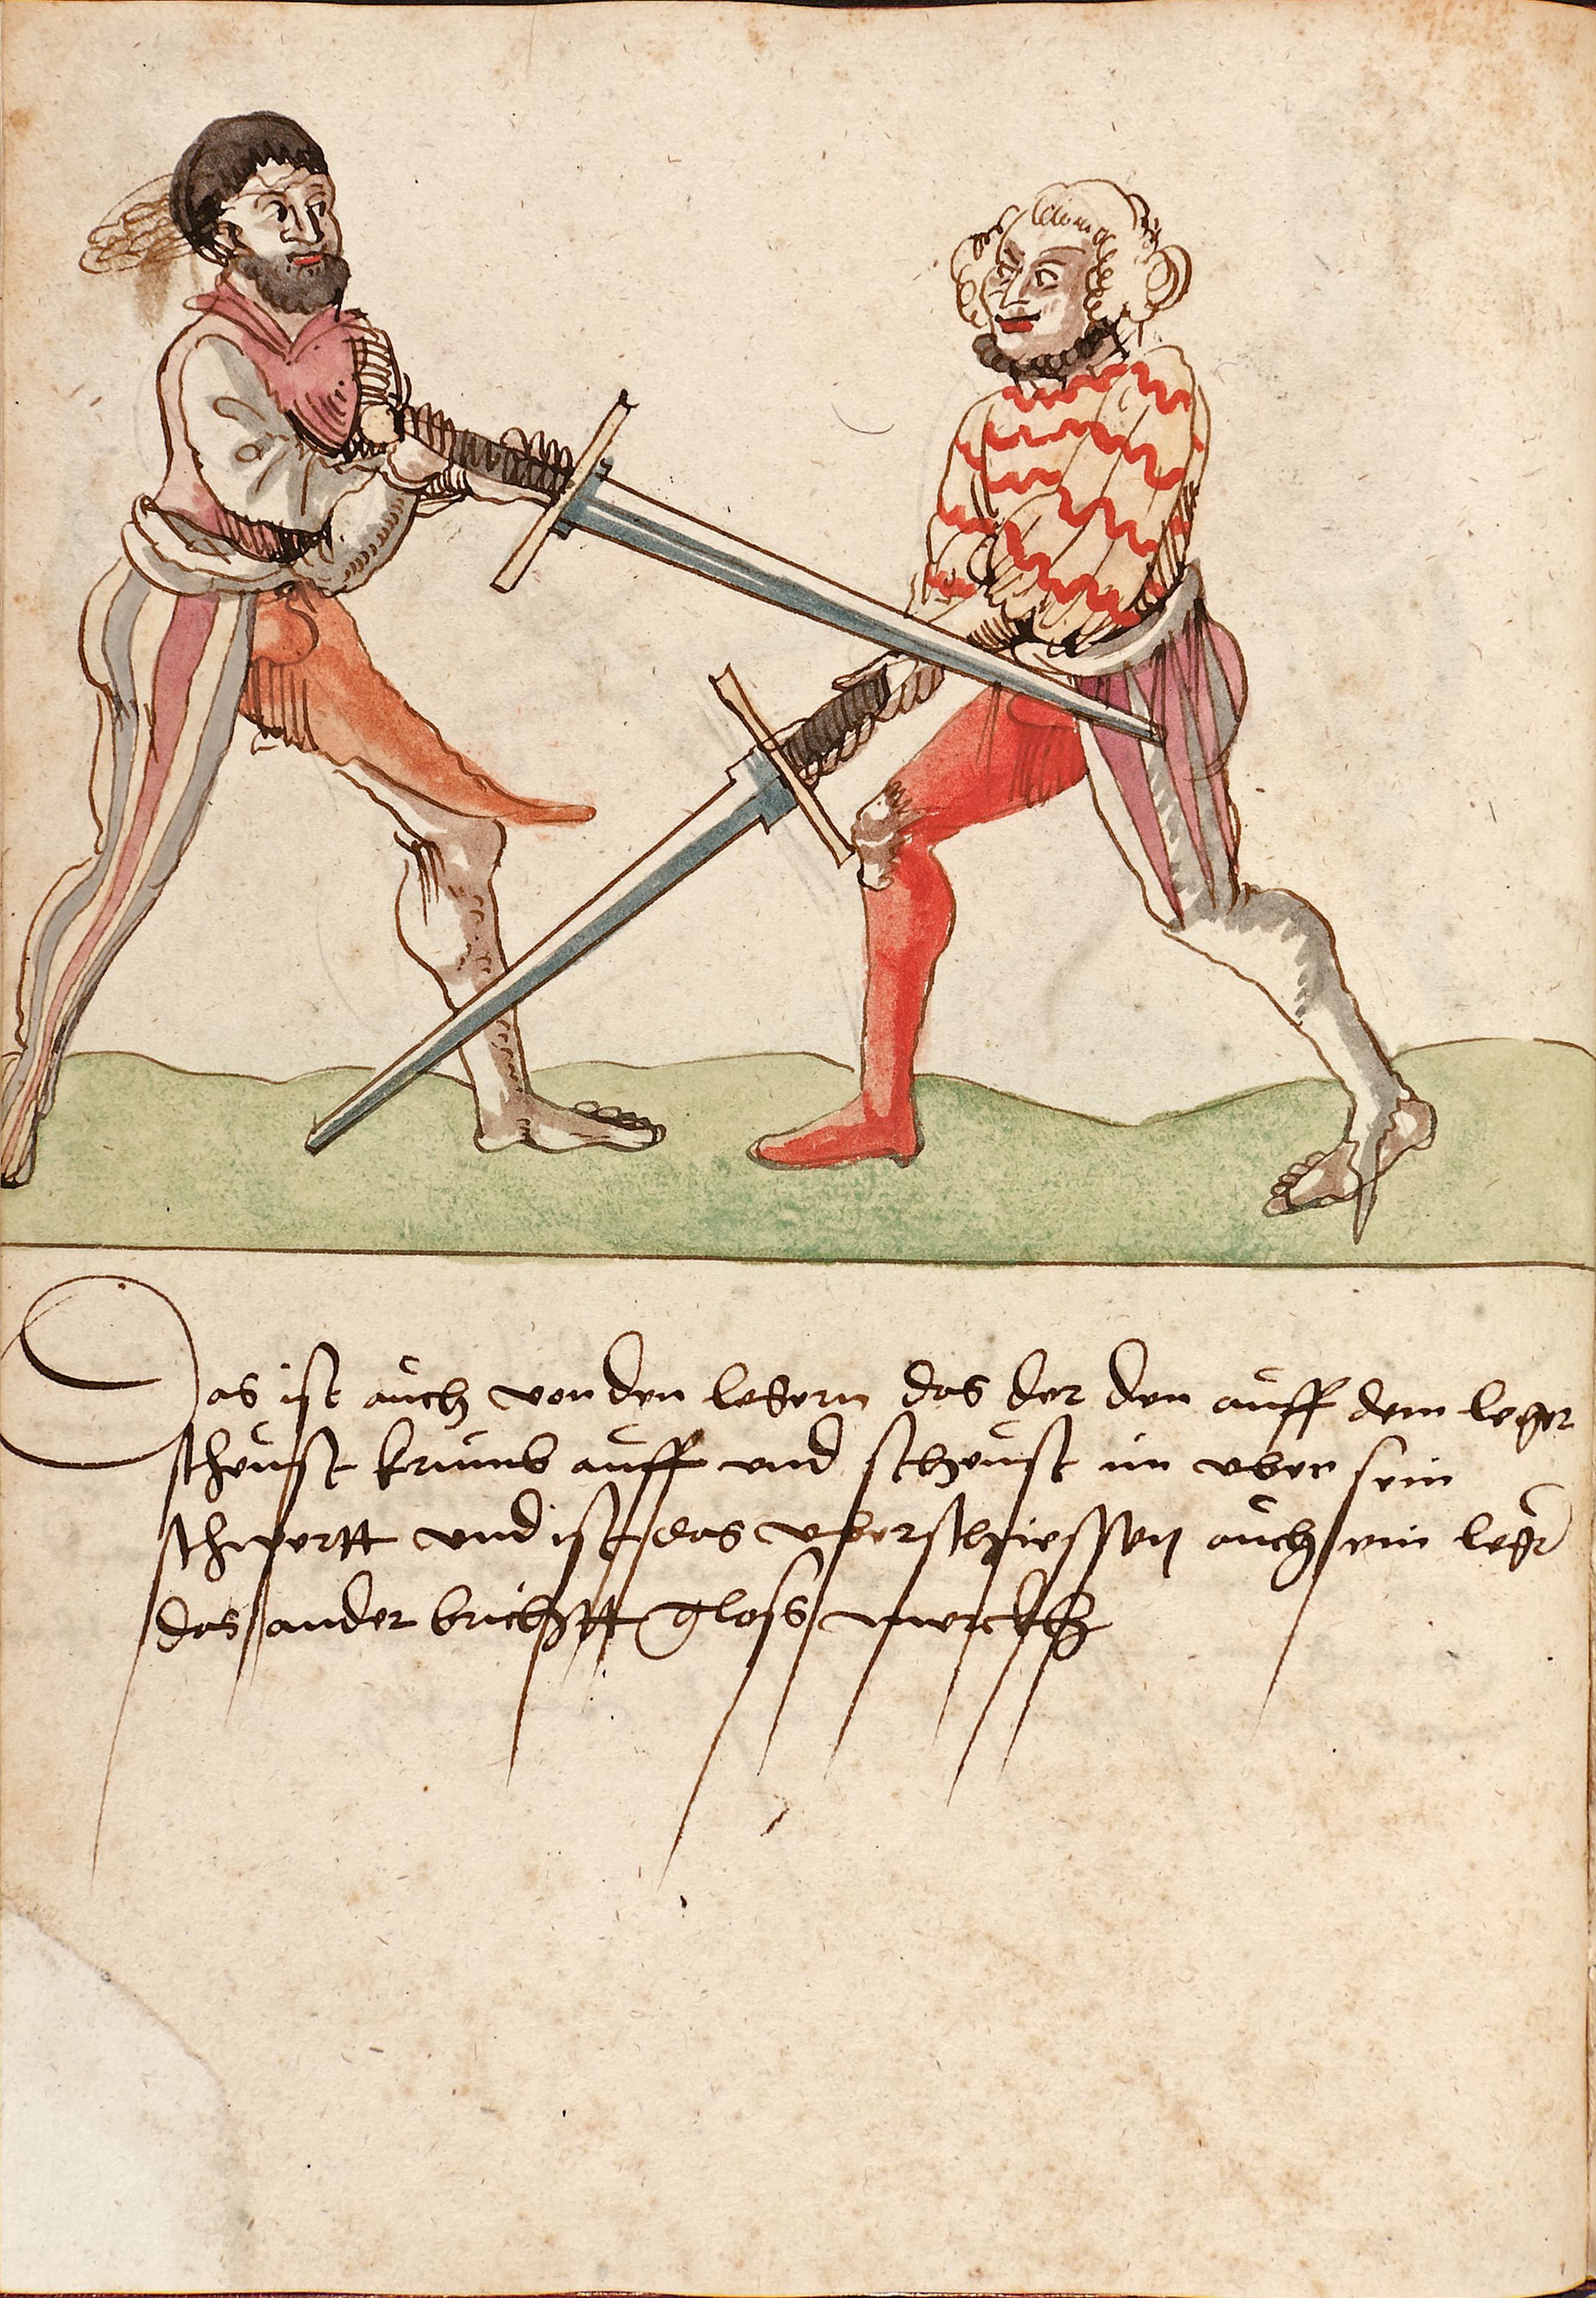 Das ist auch von den legern das der den auff dem leger
scheust krumb auff und scheust im uber sein
schwertt und ist das uberschiessen auch ein leger
das ander bricht gloss merckh